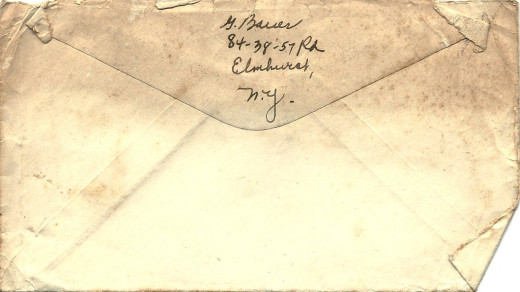 G. Bauer
84-38-57 Rd
Elmhurst,
N.Y.